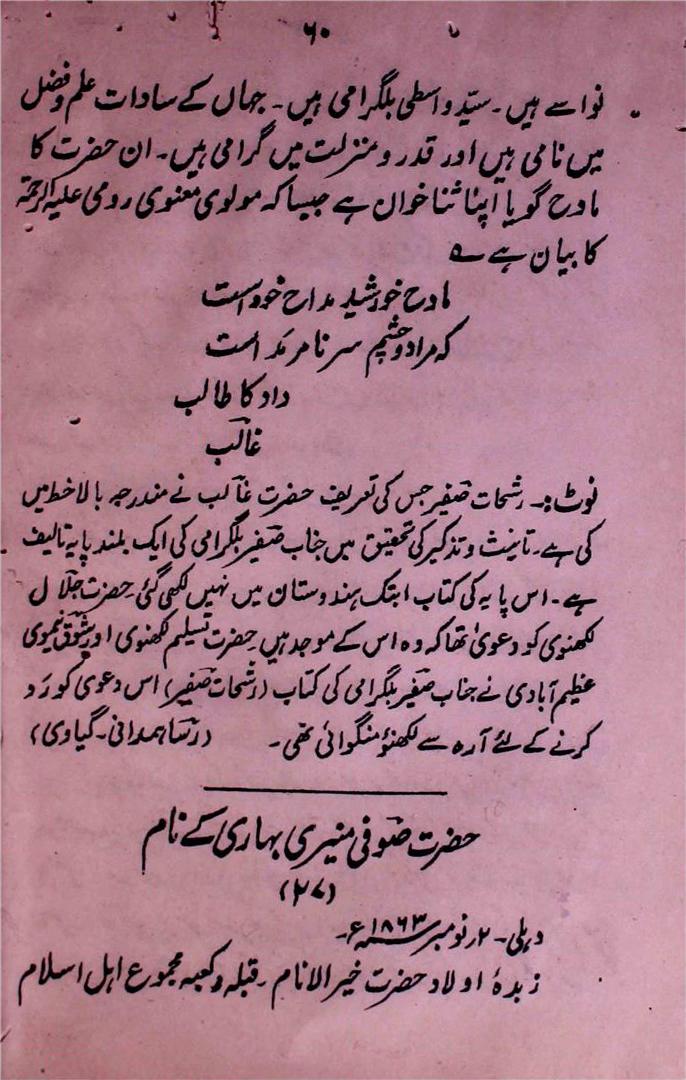 ۶۰
نواسے ہیں۔ سیّد واسطی بلگرامی ہیں۔ جہاں کے سادات علم و فضل
میں نامی ہیں اور قدر و منزلت میں گرامی ہیں۔ ان حضرت کا
مادح گویا اپنا ثنا خوان ہے جیسا کہ مولوی معنوی رومی علیہ الرحمۃ
کا بیان ہے ؎
مادح خورشید مداح خود است
کہ مرا دو چشم سر نامرمد است
داد کا طالب
غالب
نوٹ:۔ رشحات صفیر جس کی تعریف حضرت غالب نے مندرجہ بالا خط میں
کی ہے۔ تانیث و تذکیر کی تحقیق میں جناب صفیر بلگرامی کی ایک بلند پایہ تالیف
ہے۔ اس پایہ کی کتاب ابتک ہندوستان میں نہیں لکھی گئی۔ حضرت جلال
لکھنوی کو دعویٰ تھا کہ وہ اس کے موجد ہیں۔ حضرت تسلیم لکھنوی اور شوق نیموی
عظیم آبادی نے جناب صفیر بلگرامی کی کتاب (رشحات صفیر) اس دعوی کو رَد
کرنے کے لئے آرہ سے لکھنؤ منگوائی تھی۔ (رسا ہمدانی۔ گیاوی)
حضرت صوفی منیری بہاری کے نام
(۲۷)
دہلی۔ ۲ر نومبر ۱۸۶۳ء۔
زبدۂ اولاد حضرت خیر الانام۔ قبلہ و کعبہ مجموع اہل اسلام